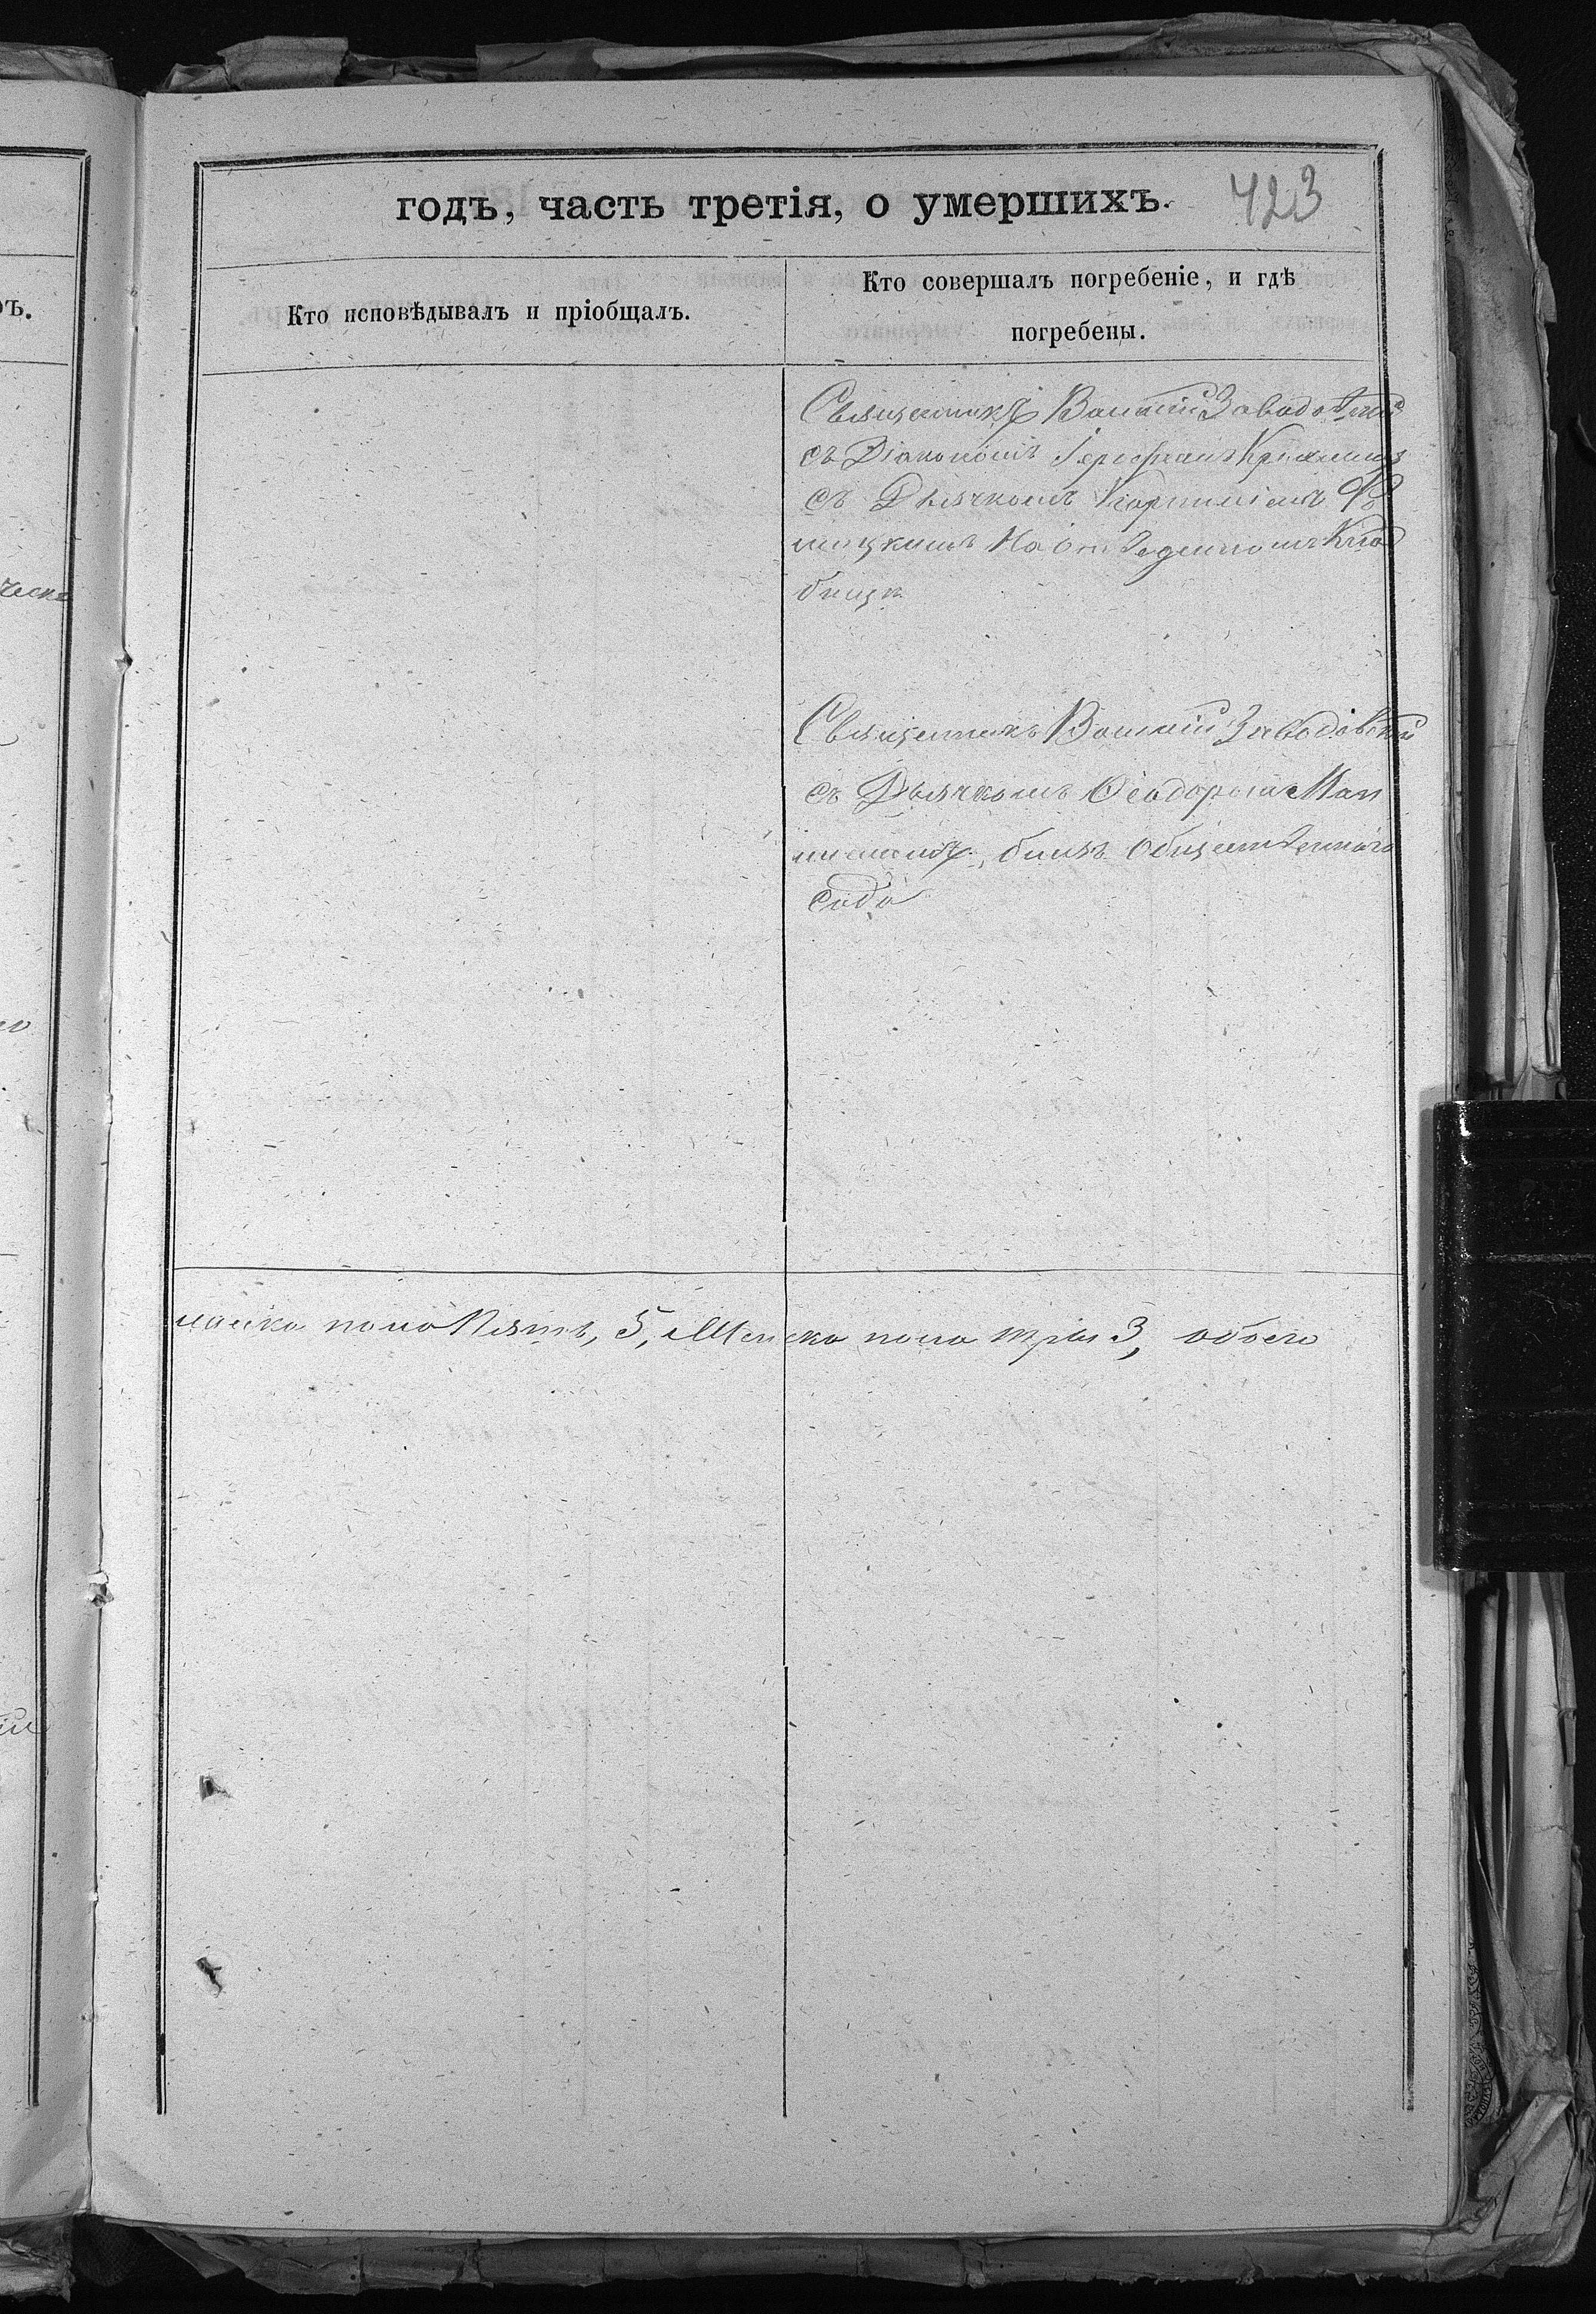 годъ, часть третія, о умершихъ. 423
Кто исповѣдывалъ и пріобщалъ.
Кто совершалъ погребеніе, и гдѣ
погребены.
Священникъ Василій Заводовскій
съ Діакономъ
съ Дьячкомъ
на отведенномъ Клад
бищѣ
Священникъ Василій Заводовскій
съ Дьячкомъ Ѳеодоромъ Ман
близъ Общественнаго
сада
пола Пять, 5, Женска пола три 3, обоего
ъ.